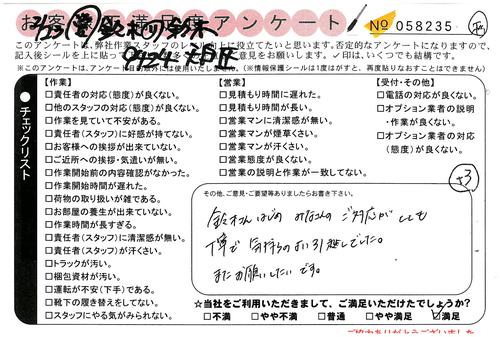 お客様満足度アンケート
No 058235
このアンケートは、弊社作業スタッフのレベル向上に役立てたいと思います。否定的なアンケートになりますので、
記入後シールを上に貼って
ご意見をお願いします。✓印は、いくつでも結構です。
※このアンケートは、アンケート目的以外には使用いたしません。(※情報保護シールは1度はがすと、再度貼りなおすことはできません)
チェックリスト
【作業】
□責任者の対応(態度)が良くない。
□他のスタッフの対応(態度)が良くない。
□作業を見ていて不安がある。
□責任者(スタッフ)に好感が持てない。
□お客様への挨拶が出来ていない。
□ご近所への挨拶・気遣いが無い。
□作業開始前の内容確認がなかった。
□作業開始時間が遅れた。
□荷物の取り扱いが雑である。
□お部屋の養生が出来ていない。
□作業時間が長すぎる。
□責任者(スタッフ)に清潔感が無い。
□責任者(スタッフ)が汗くさい。
□トラックが汚い。
□梱包資材が汚い。
□運転が不安(下手)である。
□靴下の履き替えをしてない。
□スタッフにやる気がみられない。
【営業】
□見積もり時間に遅れた。
□見積もり時間が長い。
□営業マンに清潔感が無い。
□営業マンが煙草くさい。
□営業マンが汗くさい。
□営業態度が良くない。
□営業の説明と作業が一致してない。
【受付・その他】
□電話の対応が良くない。
□オプション業者の説明
・作業が良くない。
□オプション業者の対応
(態度)が良くない。
53
その他、ご意見・ご要望等ありましたらお書き下さい。
鈴木さんはじめ みなさんの ご対応が とても
丁寧で 気持ちのよい引越しでした。
またお願いしたいです。
☆当社をご利用いただきまして、ご満足いただけたでしょうか?
□不満 □やや不満 □普通 □やや満足 ☑満足
ご協力ありがとうございました